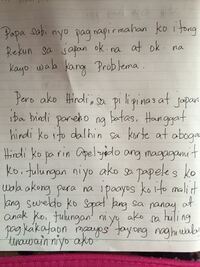 Papa sabi niyo pag napirmahan ko itong
Rekun sa japan ok na at ok na
kayo wala kang Problema.
Pero ako Hindi, sa pilipinas at japan
iba hindi pareho ng batas. Hanggat
hindi ko ito dalhin sa korte at abogado
Hindi ko parin Apelyido ang magagamit
ko, tulungan niyo ako sa papeles ko
wala akong pera na ipaayos ko ito maliit
lang sweldo ko sapat lang sa nanay at
anak ko, tulungan niyo ako sa huling
pagkakataon maayos tayong maghiwalay
unawain niyo ako